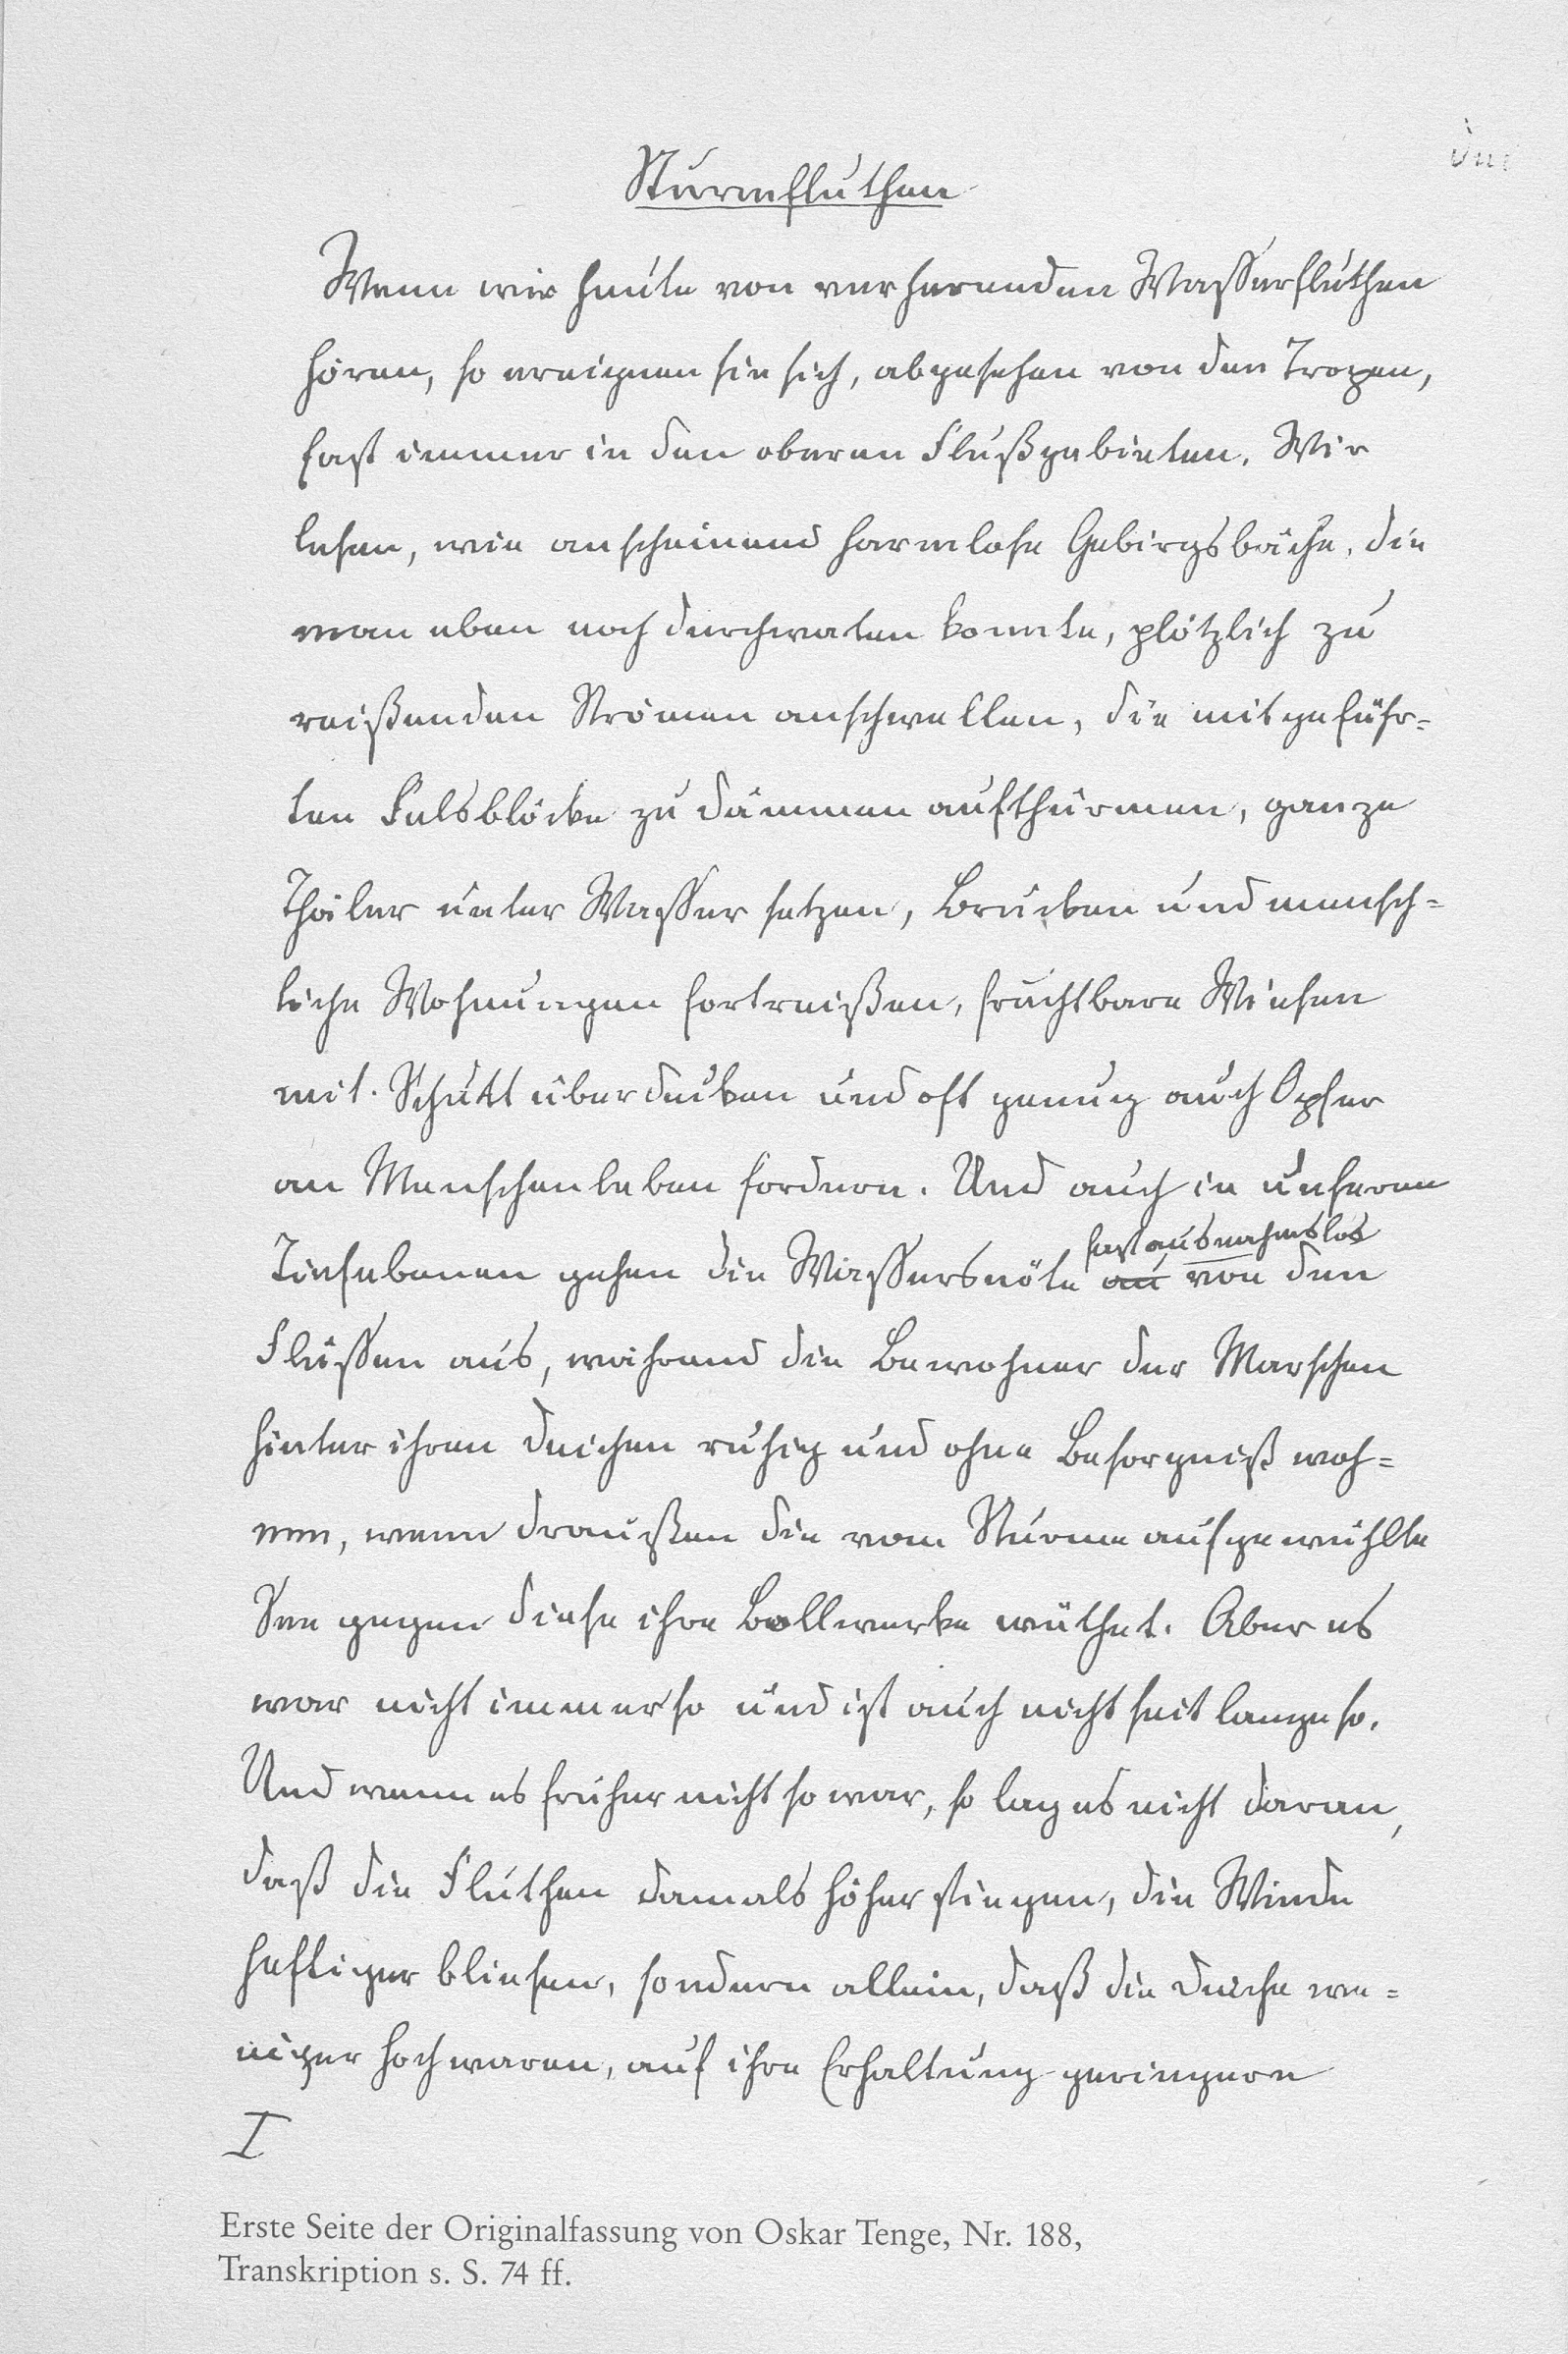 Sturmfluthen
Wenn wir heute von verherenden Wasserfluthen
hören, so ereignen sie sich, abgesehen von den Tropen,
fast immer in den oberen Flußgebieten. Wir
lesen, wie anscheinend harmlose Gebirgsbäche, die
man eben noch durchwaten konnte, plötzlich zu
reißenden Strömen anschwellen, die mitgeführ-
ten Felsblöcke zu Dämmen aufthürmen, ganze
Thäler unter Wasser setzen, Brücken und mensch-
liche Wohnungen fortreißen, fruchtbare Wiesen
mit Schutt überdecken und oft genug auch Opfer
an Menschenleben fordern. Und auch in unseren
fast ausnahmslos
Tiefebenen gehen die Wassersnöte au von den
Flüssen aus, während die Bewohner der Marschen
hinter ihren Deichen ruhig und ohne Besorgniß woh-
nen, wenn draußen die vom Sturme aufgewühlte
See gegen diese ihre Bollwerke wüthet. Aber es
war nicht immer so und ist auch nicht seit lange so.
Und wenn es früher nicht so war, so lag es nicht daran,
daß die Fluthen damals höher stiegen, die Winde
heftiger bliesen, sondern allein, daß die Deiche we-
niger hoch waren, auf ihre Erhaltung geringere
I
Erste Seite der Originalfassung von Oskar Tenge, Nr. 188,
Transkription s. S. 74 ff.